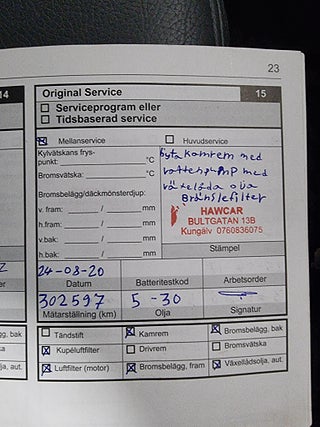 23
14
Original Service 15
Serviceprogram eller
Tidsbaserad service
Mellanservice
Huvudservice
Kylvätskans frys-
punkt: °C
Bromsvätska: °C
Bromsbelägg/däckmönsterdjup:
v. fram: / mm
h.fram: / mm
v.bak: / mm
h.bak: / mm
byta Kamrem med
vattenpump med
växellåda olja
Bränslefilter
HAWCAR
BULTGATAN 13B
Kungälv 0760836075
Stämpel
24-08-20
Datum
Batteritestkod
Arbetsorder
302597
5-30
Mätarställning (km)
Olja
Signatur
Tändstift
Kamrem
Bromsbelägg, bak
Kupéluftfilter
Drivrem
Bromsvätska
Luftfilter (motor)
Bromsbelägg, fram
Växellådsolja, aut.